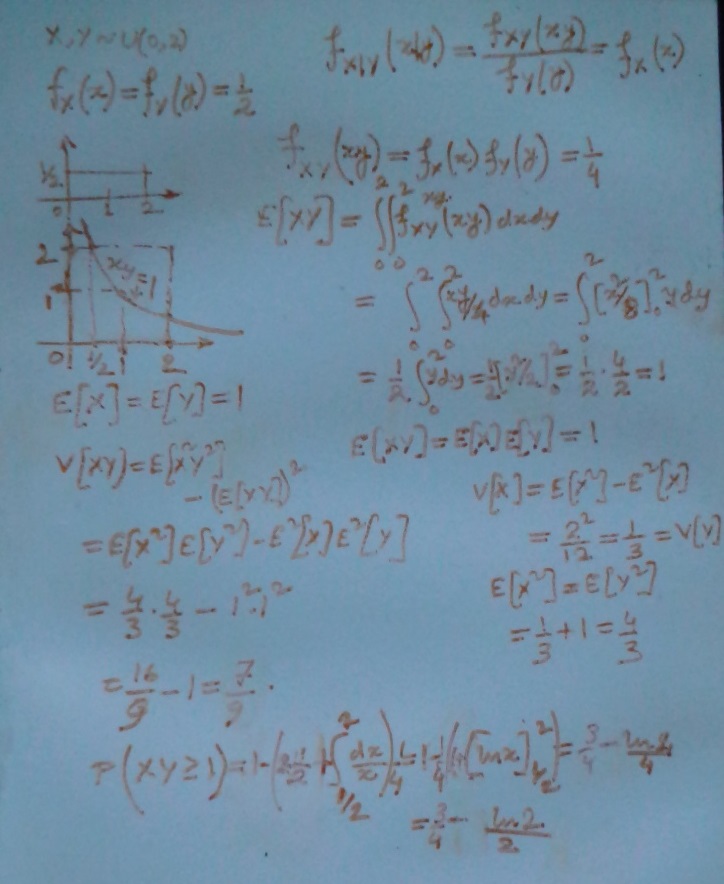 X, Y ~ U(0,2)
f_X(x) = f_Y(y) = 1/2
f_{X|Y}(x|y) = f_{XY}(xy)/f_Y(y) = f_X(x)
f_{XY}(xy) = f_X(x) f_Y(y) = 1/4
1/2
0 1 2
2
1
xy=1
0 1/2 1 2
E[XY] = ∫_0^2 ∫_0^2 xy f_{XY}(xy) dx dy
= ∫_0^2 ∫_0^2 xy/4 dx dy = ∫_0^2 [x²/8]_0^2 y dy
= 1/2 ∫_0^2 y dy = 1/2 [y²/2]_0^2 = 1/2 · 4/2 = 1
E[XY] = E[X]E[Y] = 1
E[X] = E[Y] = 1
V[XY) = E[X²Y²]
- (E[XY])²
= E[X²]E[Y²] - E²[X]E²[Y]
= 4/3 · 4/3 - 1²·1²
= 16/9 - 1 = 7/9 .
V[X] = E[X²] - E²[X]
= 2²/12 = 1/3 = V[Y]
E[X²] = E[Y²]
= 1/3 + 1 = 4/3
P(XY ≥ 1) = 1 - (2·1/2 + ∫_{1/2}^2 dx/x) 1/4 = [ln x]_{1/2}^2 = 3/4 - ln 2/4
= 3/4 - ln 2/2